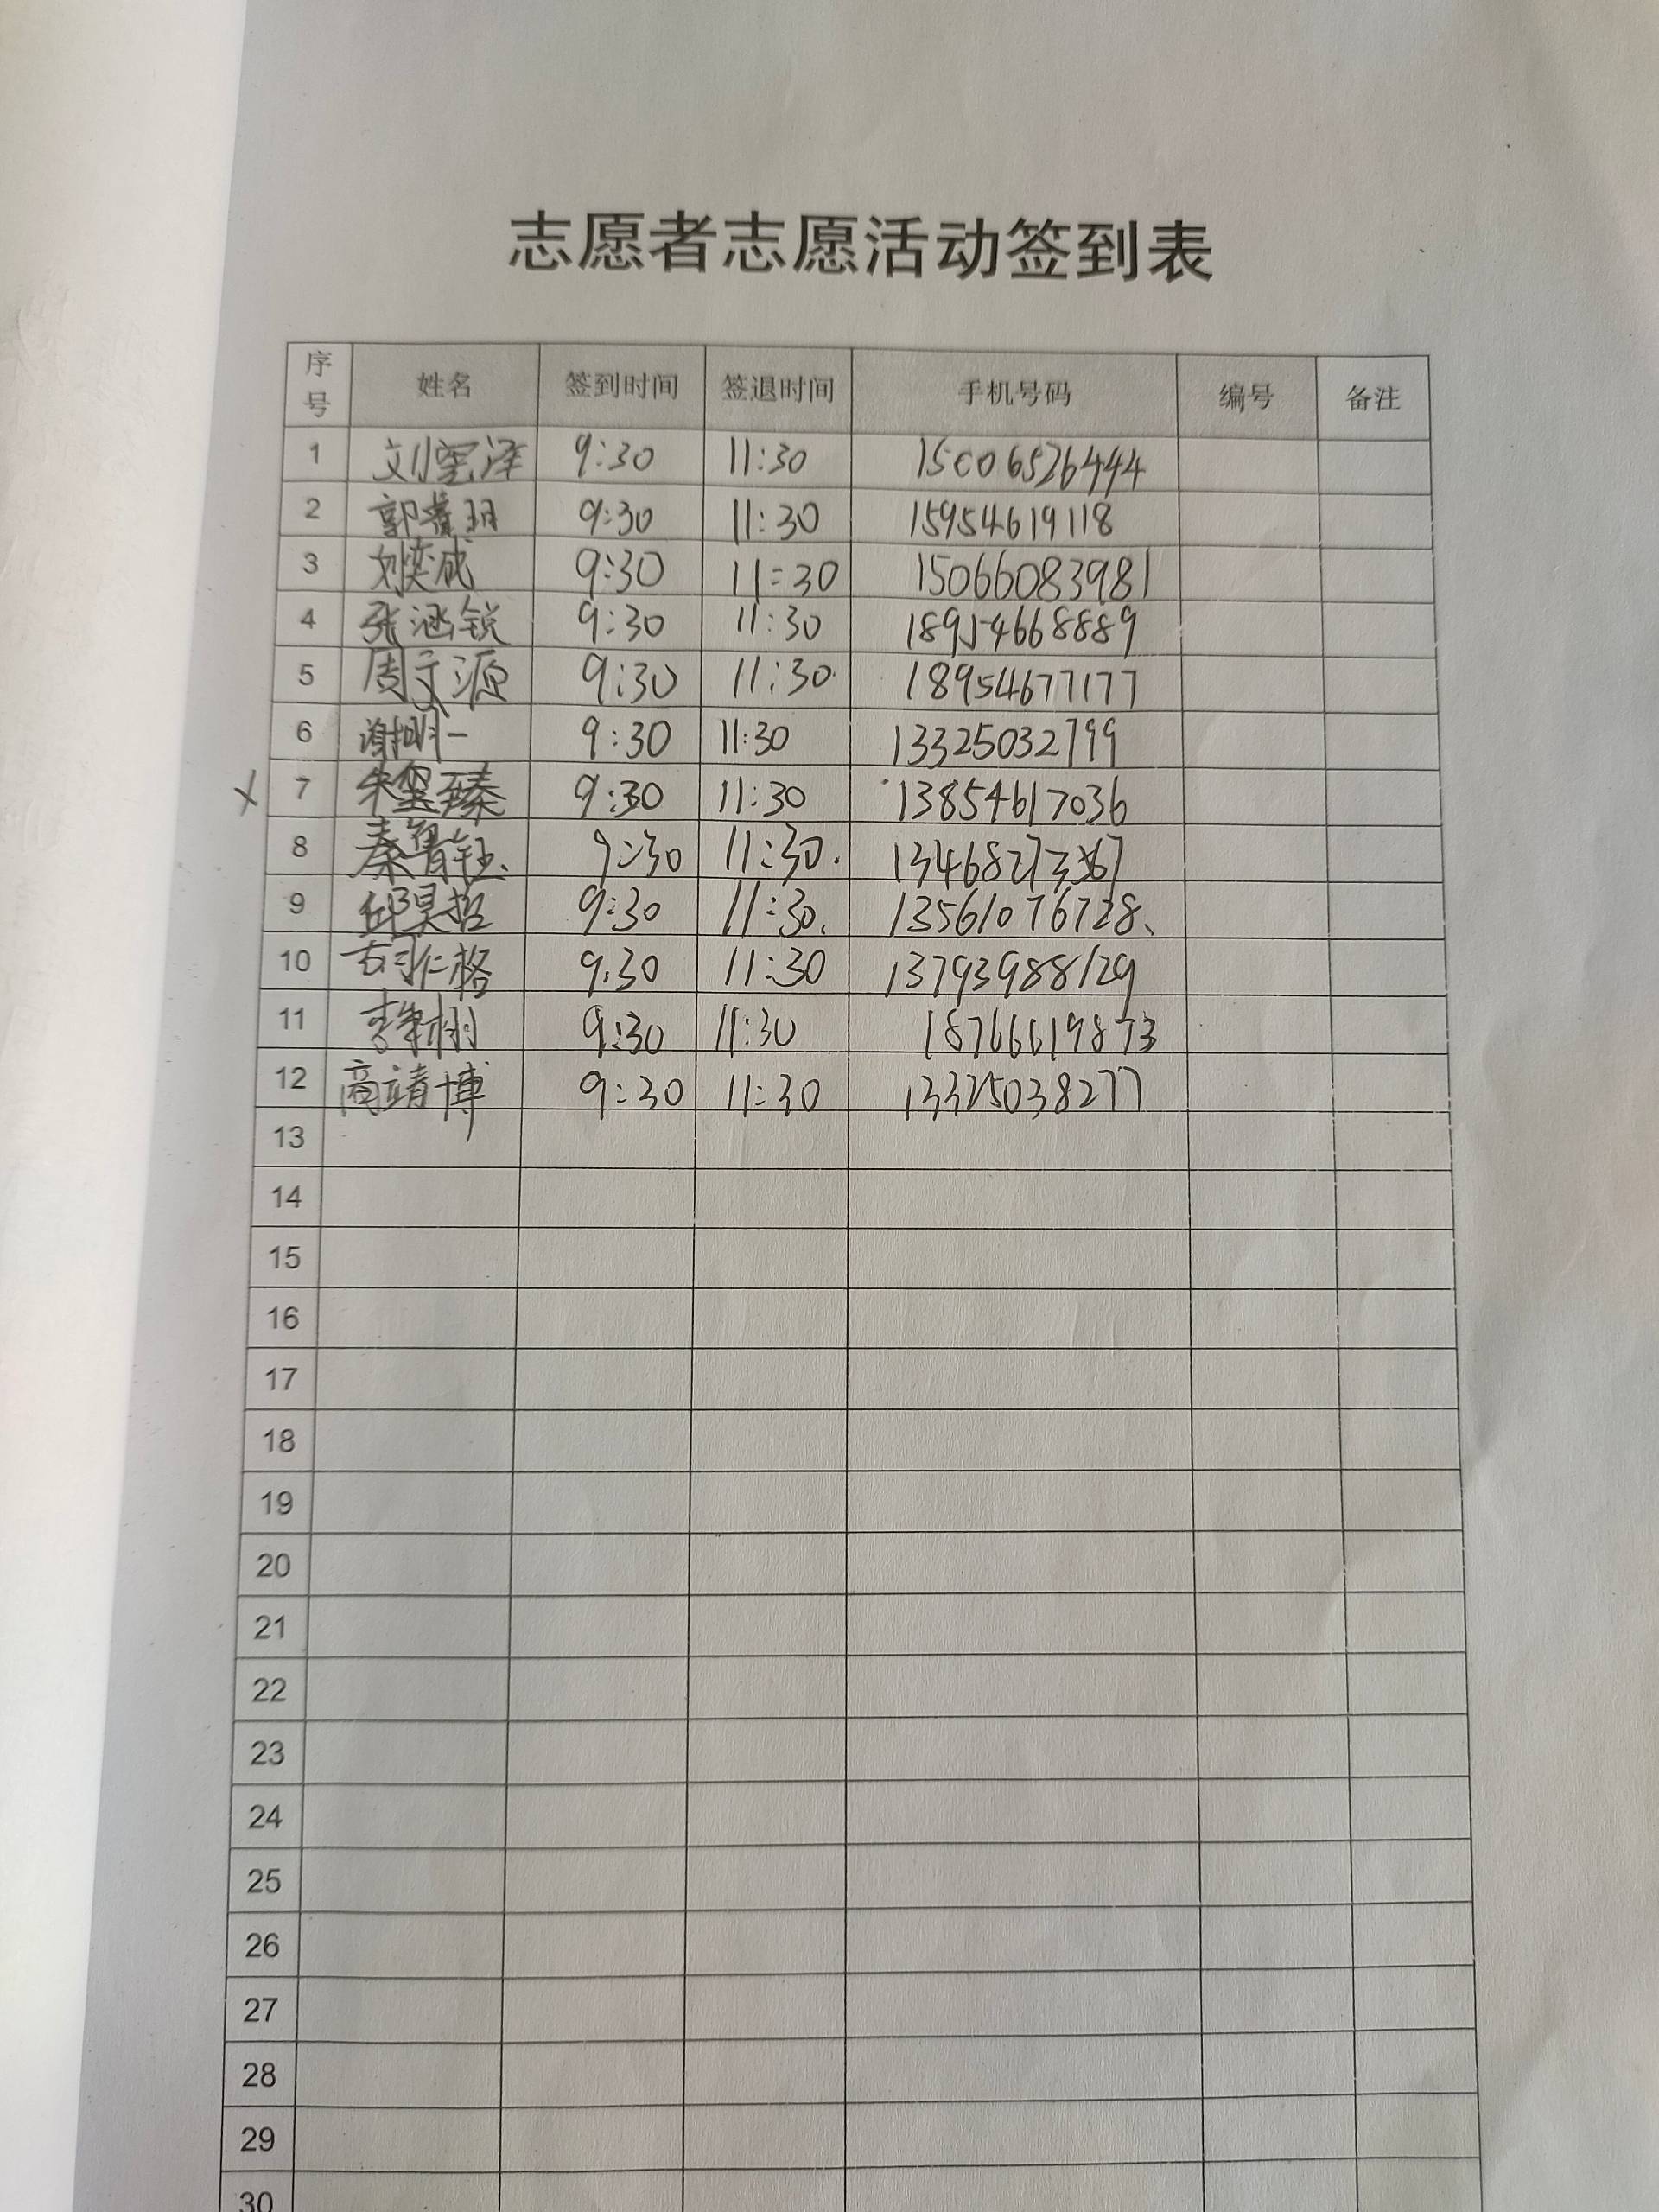 志愿者志愿活动签到表
序号 姓名 签到时间 签退时间 手机号码 编号 备注
1 刘 泽 9:30 11:30 15006526444
2 郭 9:30 11:30 15954619118
3 刘奕成 9:30 11:30 15066083981
4 张涵锐 9:30 11:30 18954668889
5 周文源 9:30 11:30 18954677177
6 谢明一 9:30 11:30 13325032799
X 7 朱垦臻 9:30 11:30 13854617036
8 秦鲁钰 9:30 11:30. 13468273367
9 邱昊哲 9:30 11:30. 13561076728、
10 仁格 9:30 11:30 13793988129
11 李 树 9:30 11:30 18766619873
12 商靖博 9:30 11:30 13325038277
13
14
15
16
17
18
19
20
21
22
23
24
25
26
27
28
29
30